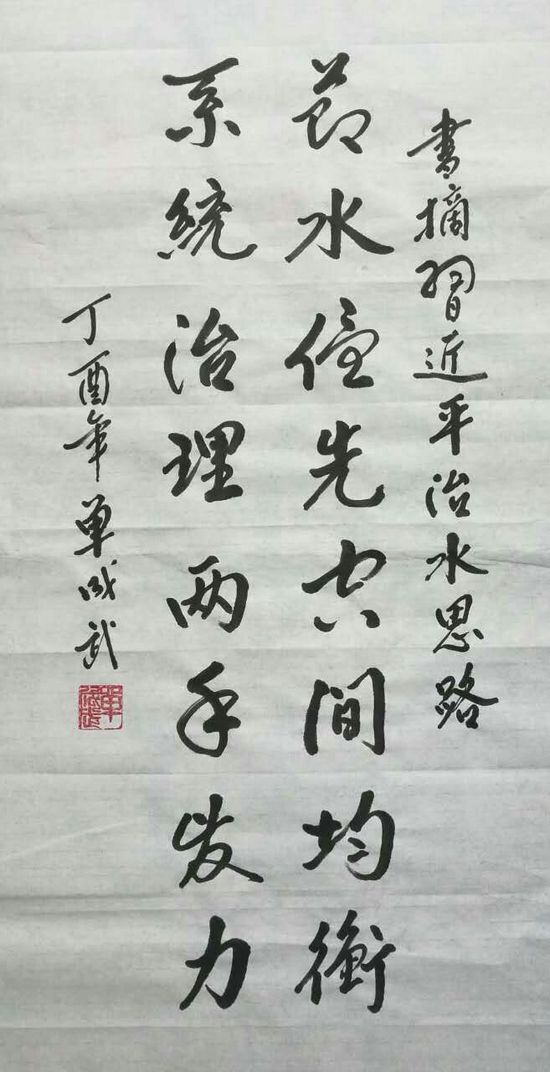 書摘習近平治水思路
節水優先空間均衡
系統治理两手发力
丁酉年单成武